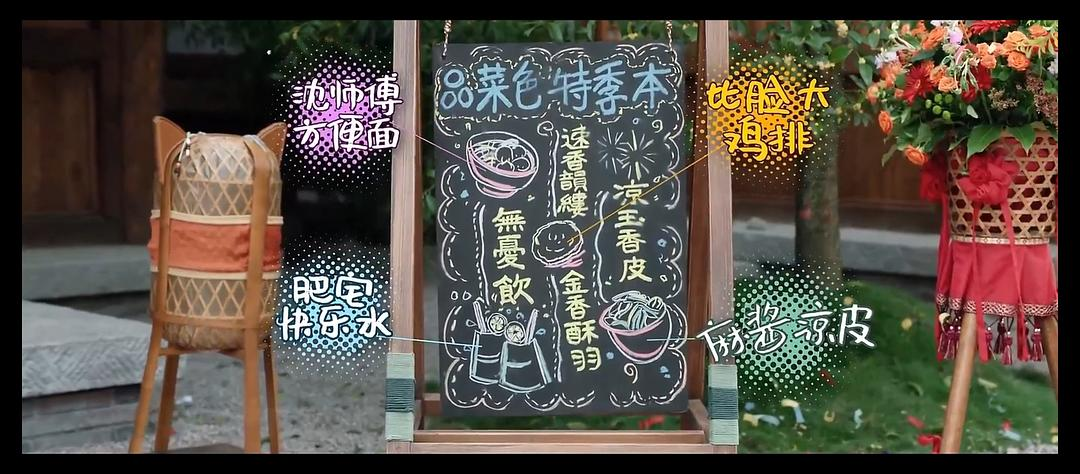 品菜色特季本
速香韻縷
涼玉香皮
無憂飲
金香酥羽
沈师傅
方便面
比脸大
鸡排
肥宅
快乐水
麻酱凉皮